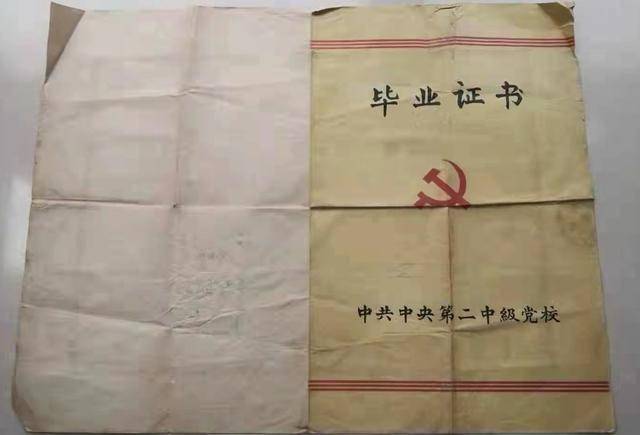 毕业证书
中共中央第二中級党校